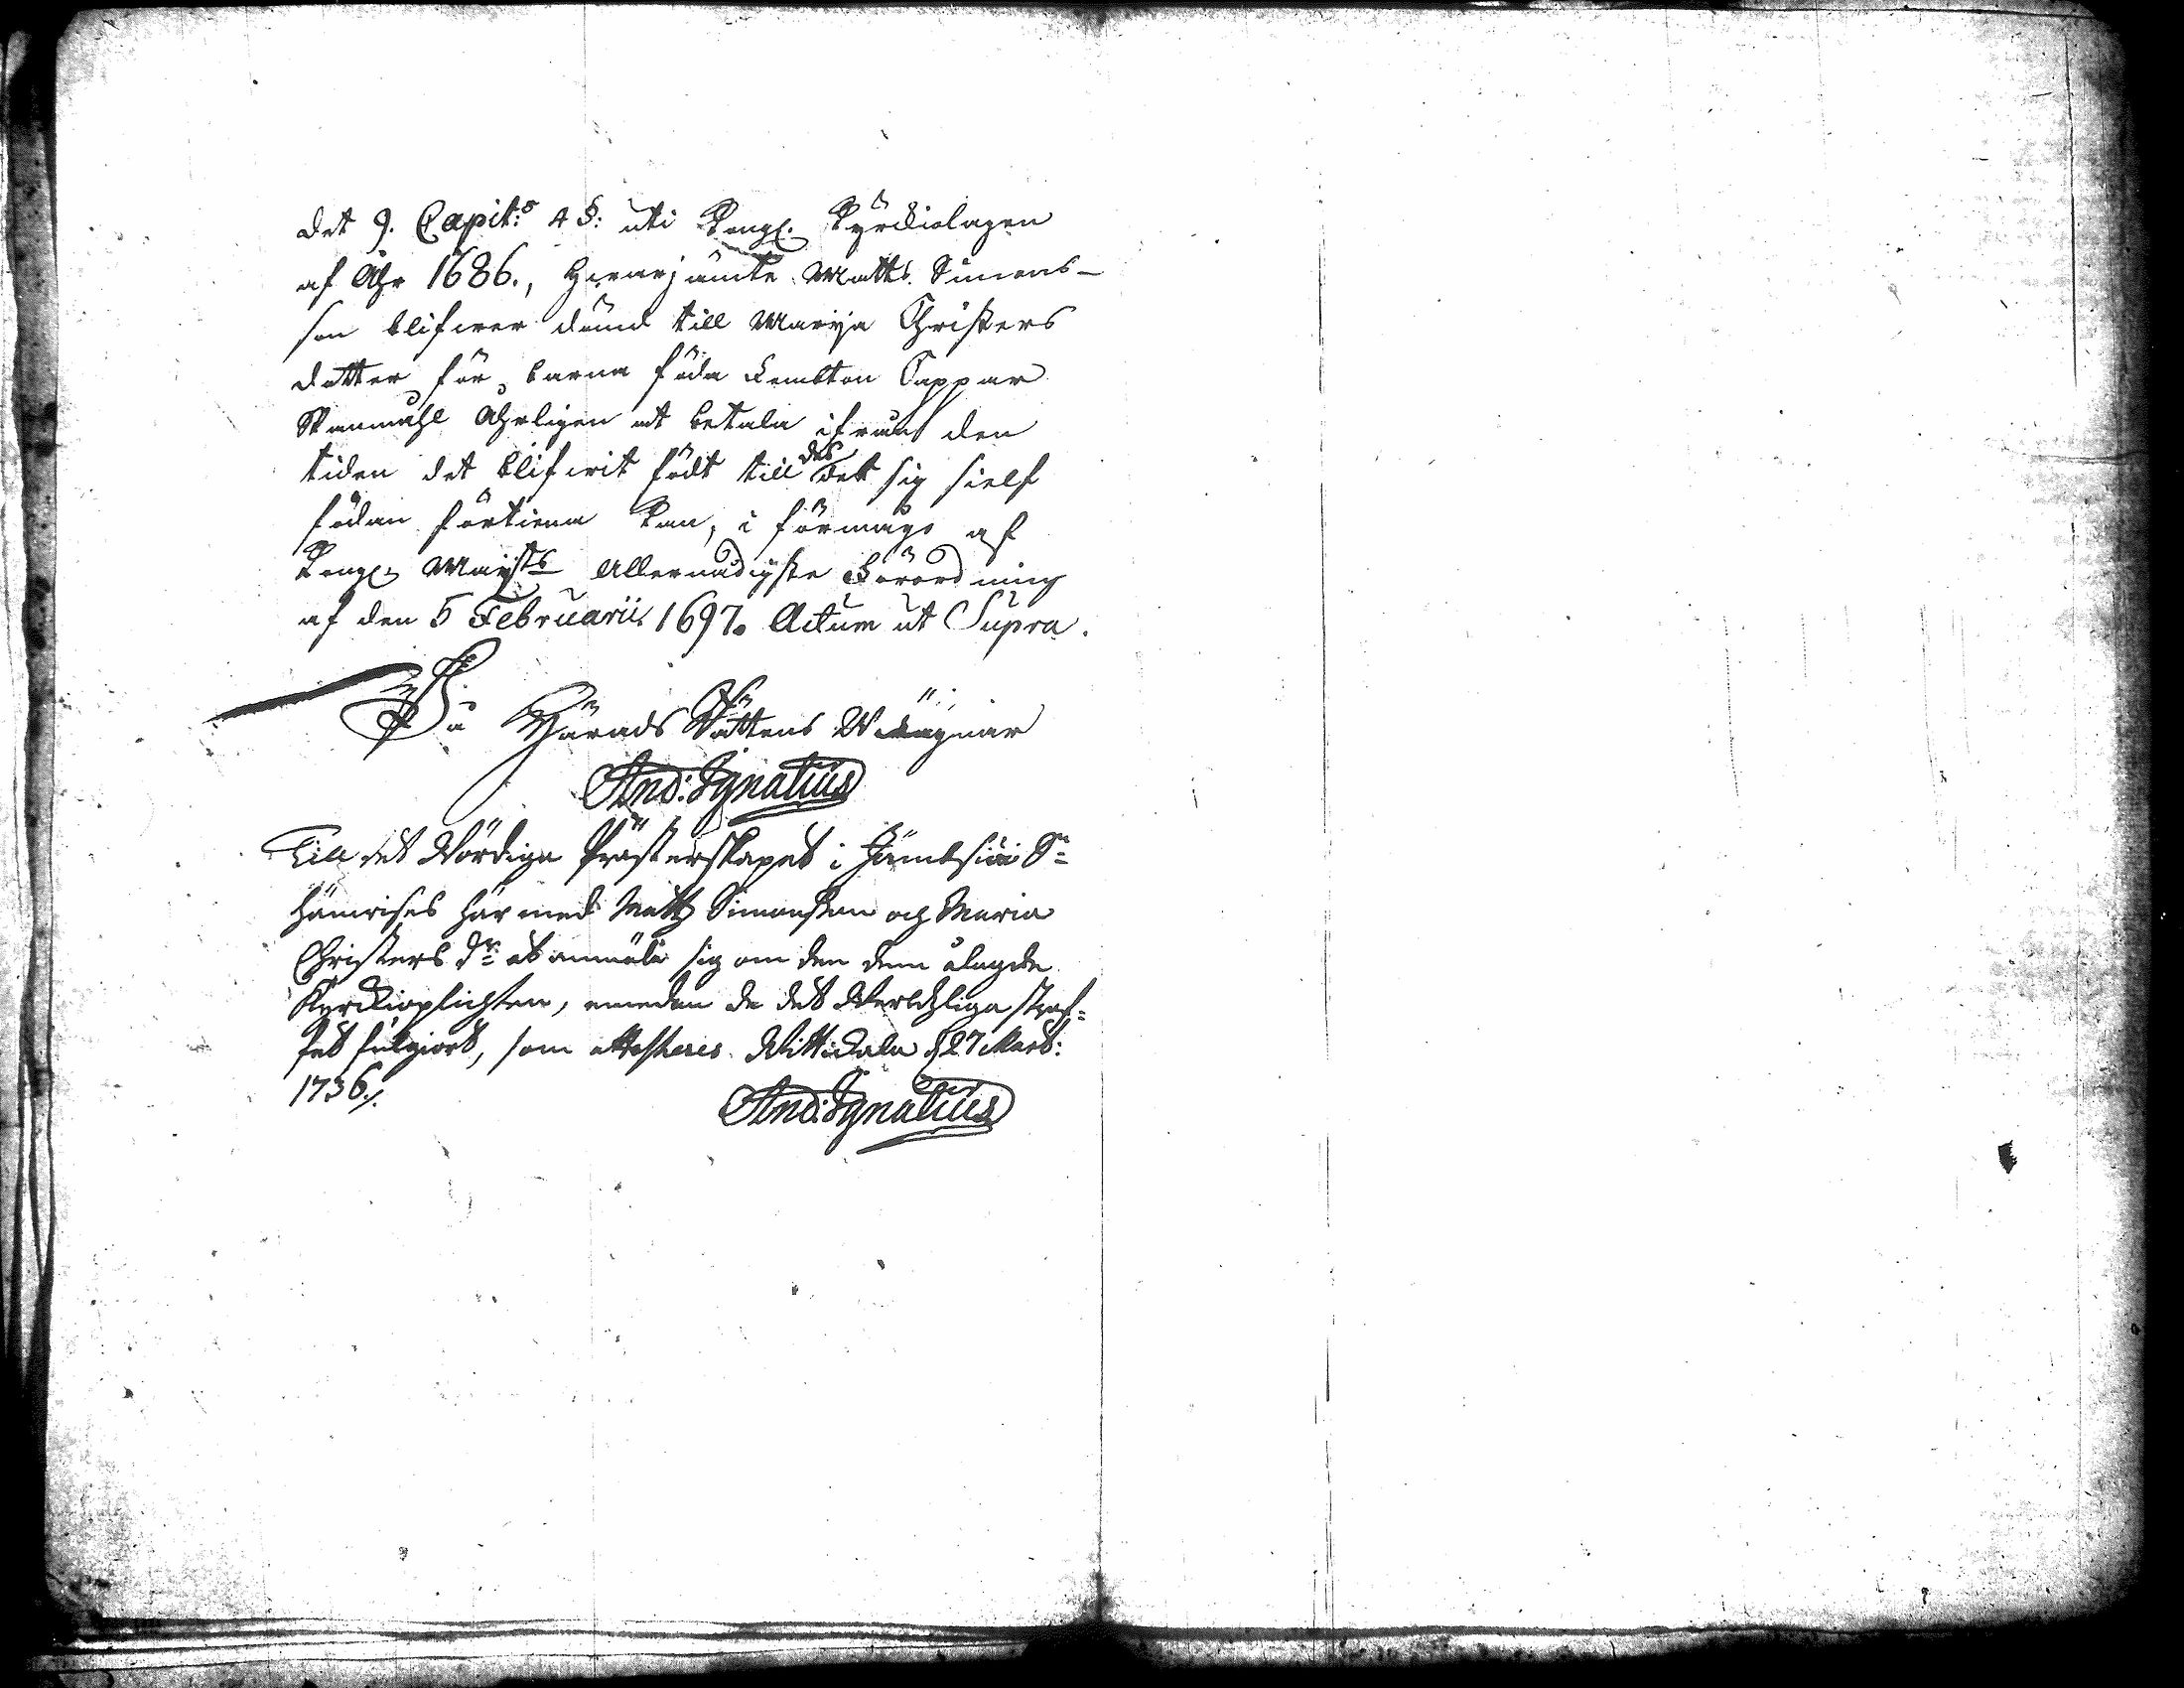 det 9. Capit:o 4 §: uti Kongl. Kyrckiolagen
af Åhr 1686., hwarjämte Matts Simons-
son blifwer dömd till Marja Christers
dotter för barna föda Fembton Cappar
Spanmåhl Åhrligen at betala ifrån den
tiden det blifwit födt till des det sig sielf
födan förtiena kan, i förmågo af
Kongl. Mayts Allernådigste Förordning
af den 5 Februarii 1697. Actum ut Supra.
På Härads Rättens Wägnar
And: Ignatius
Till det Wördiga Prästerskapet i Jämbsiöö Sn
hänwises här med Matts Simonsson och Maria
Christers dr at anmäla sig om den dem ålagde
Kyrckioplichten, emedan de det Werldzliga straf-
fet fulgiort, som attesteres Wittickala d 27 Mart:
1736./.
And: Ignatius